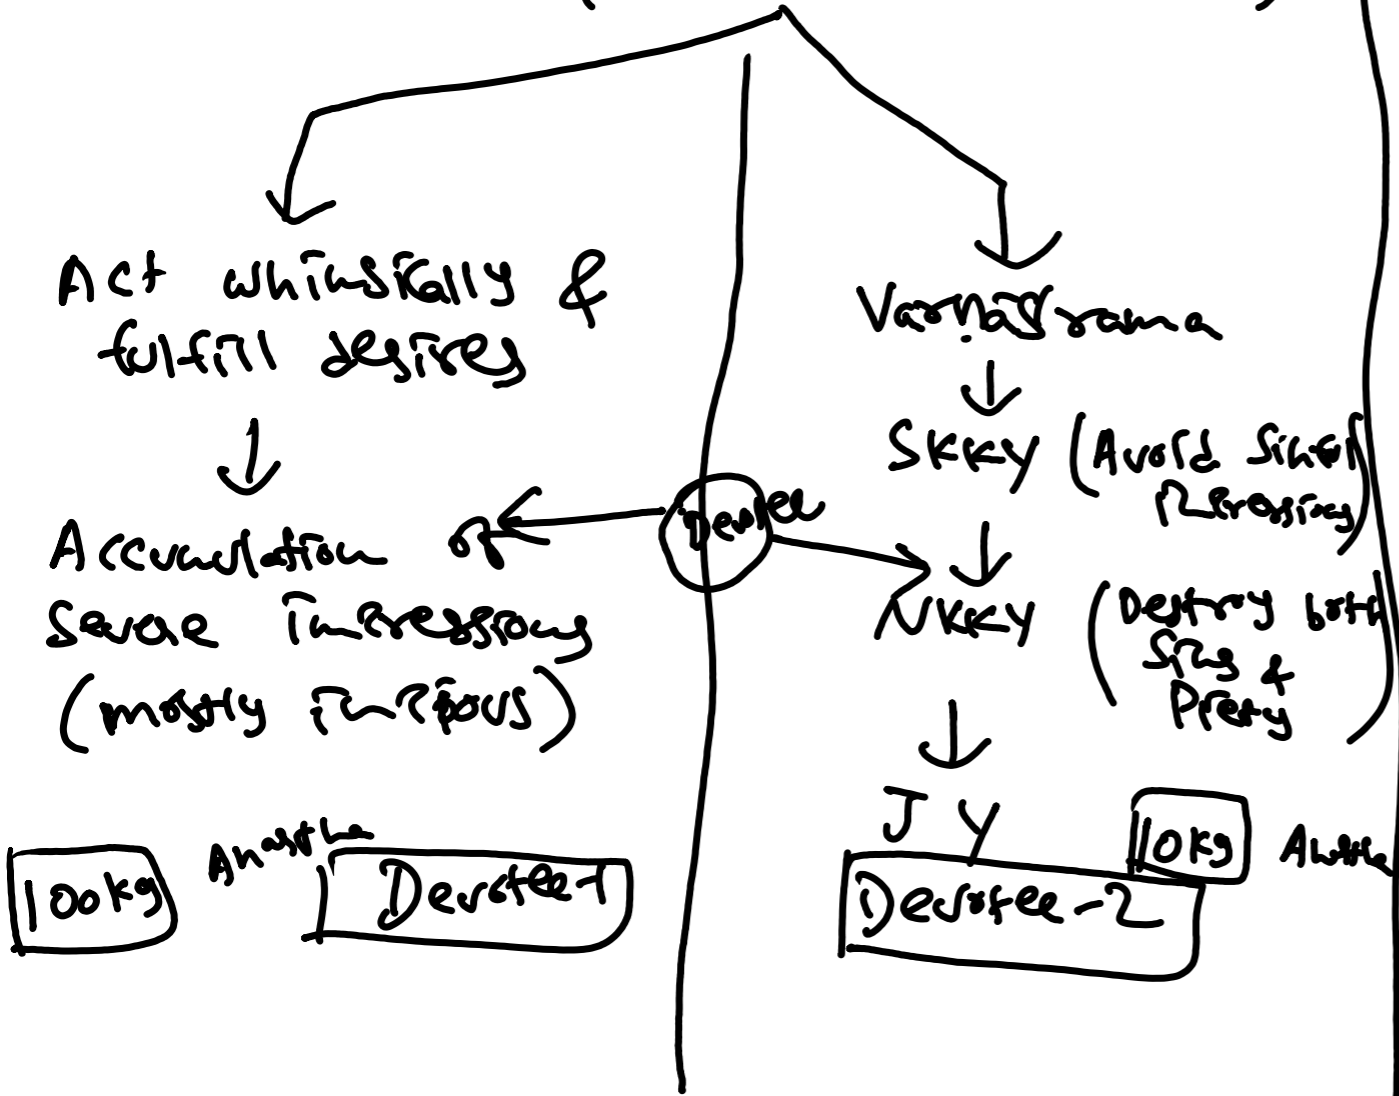 Act whimsically &
fulfill desires
Accumulation of
Severe impressions
(mostly impious)
100kg
Anartha
Devotee-1
Devotee
Varnasrama
SKKY (Avoid Sinful
Impressions)
NKKY (Destroy both
Sins &
Piety)
JY
10kg
Anartha
Devotee-2